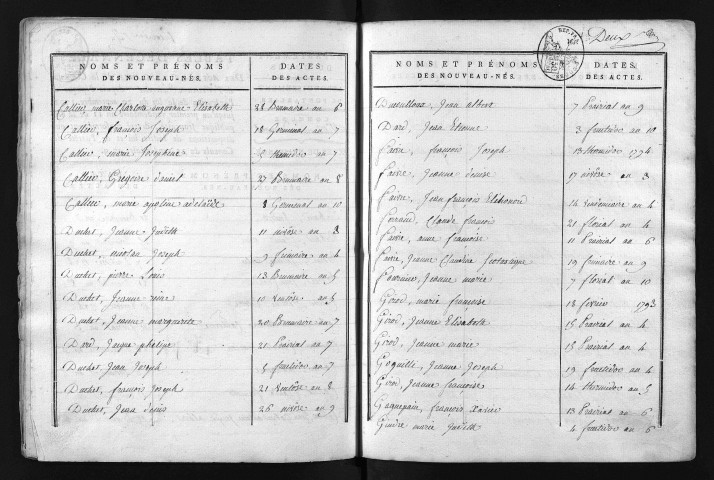 NOMS ET PRÉNOMS DES NOUVEAU-NÉS. DATES DES ACTES.
Callier marie Charlote Elisabeth 28 Brumaire an 6
Callier, françois Joseph 18 Germinal an 7
Callier, marie Josephine 2 thermidor an 7
Callier, Gregoire 27 Brumaire an 8
Callier, marie apoline adelaide 8 Germinal an 10
Duchet, Jeanne Judith 11 nivôse an 3
Duchet, nicolas Joseph 9 frimaire an 4
Duchet, pierre Louis 13 Brumaire an 5
Duchet, Jeanne 10 Ventôse an 5
Duchet, Jeanne margueritte 20 Brumaire an 7
Dard, Jacque philipe 21 Prairial an 7
Duchet Jean Joseph 5 fructidor an 7
Duchet, françois Joseph 21 Ventôse an 8
Duchet, Jean denis 26 nivôse an 9
Deux
NOMS ET PRÉNOMS DES NOUVEAU-NÉS. DATES DES ACTES.
Jean albert 7 Prairial an 9
Dard, Jean Etienne 3 fructidor an 10
Faivre, françois Joseph 13 thermidor 1794
Faivre, Jeanne denise 17 nivôse an 3
Faivre, Jean françois 14 Vendémiaire an 4
Claude françois 21 floréal an 4
Faivre, anne françoise 11 Prairial an 6
Faivre, Jeanne Claudine 19 frimaire an 9
Jeanne marie 7 floréal an 10
Girod, marie françoise 18 février 1793
Girod, Jeanne Elisabeth 15 Prairial an 4
Girod, Jeanne marie 15 Prairial an 4
Jeanne Joseph 19 fructidor an 4
Girod, Jeanne françoise 14 thermidor an 5
françois Xavier 13 Prairial an 6
marie Judith 4 fructidor an 6